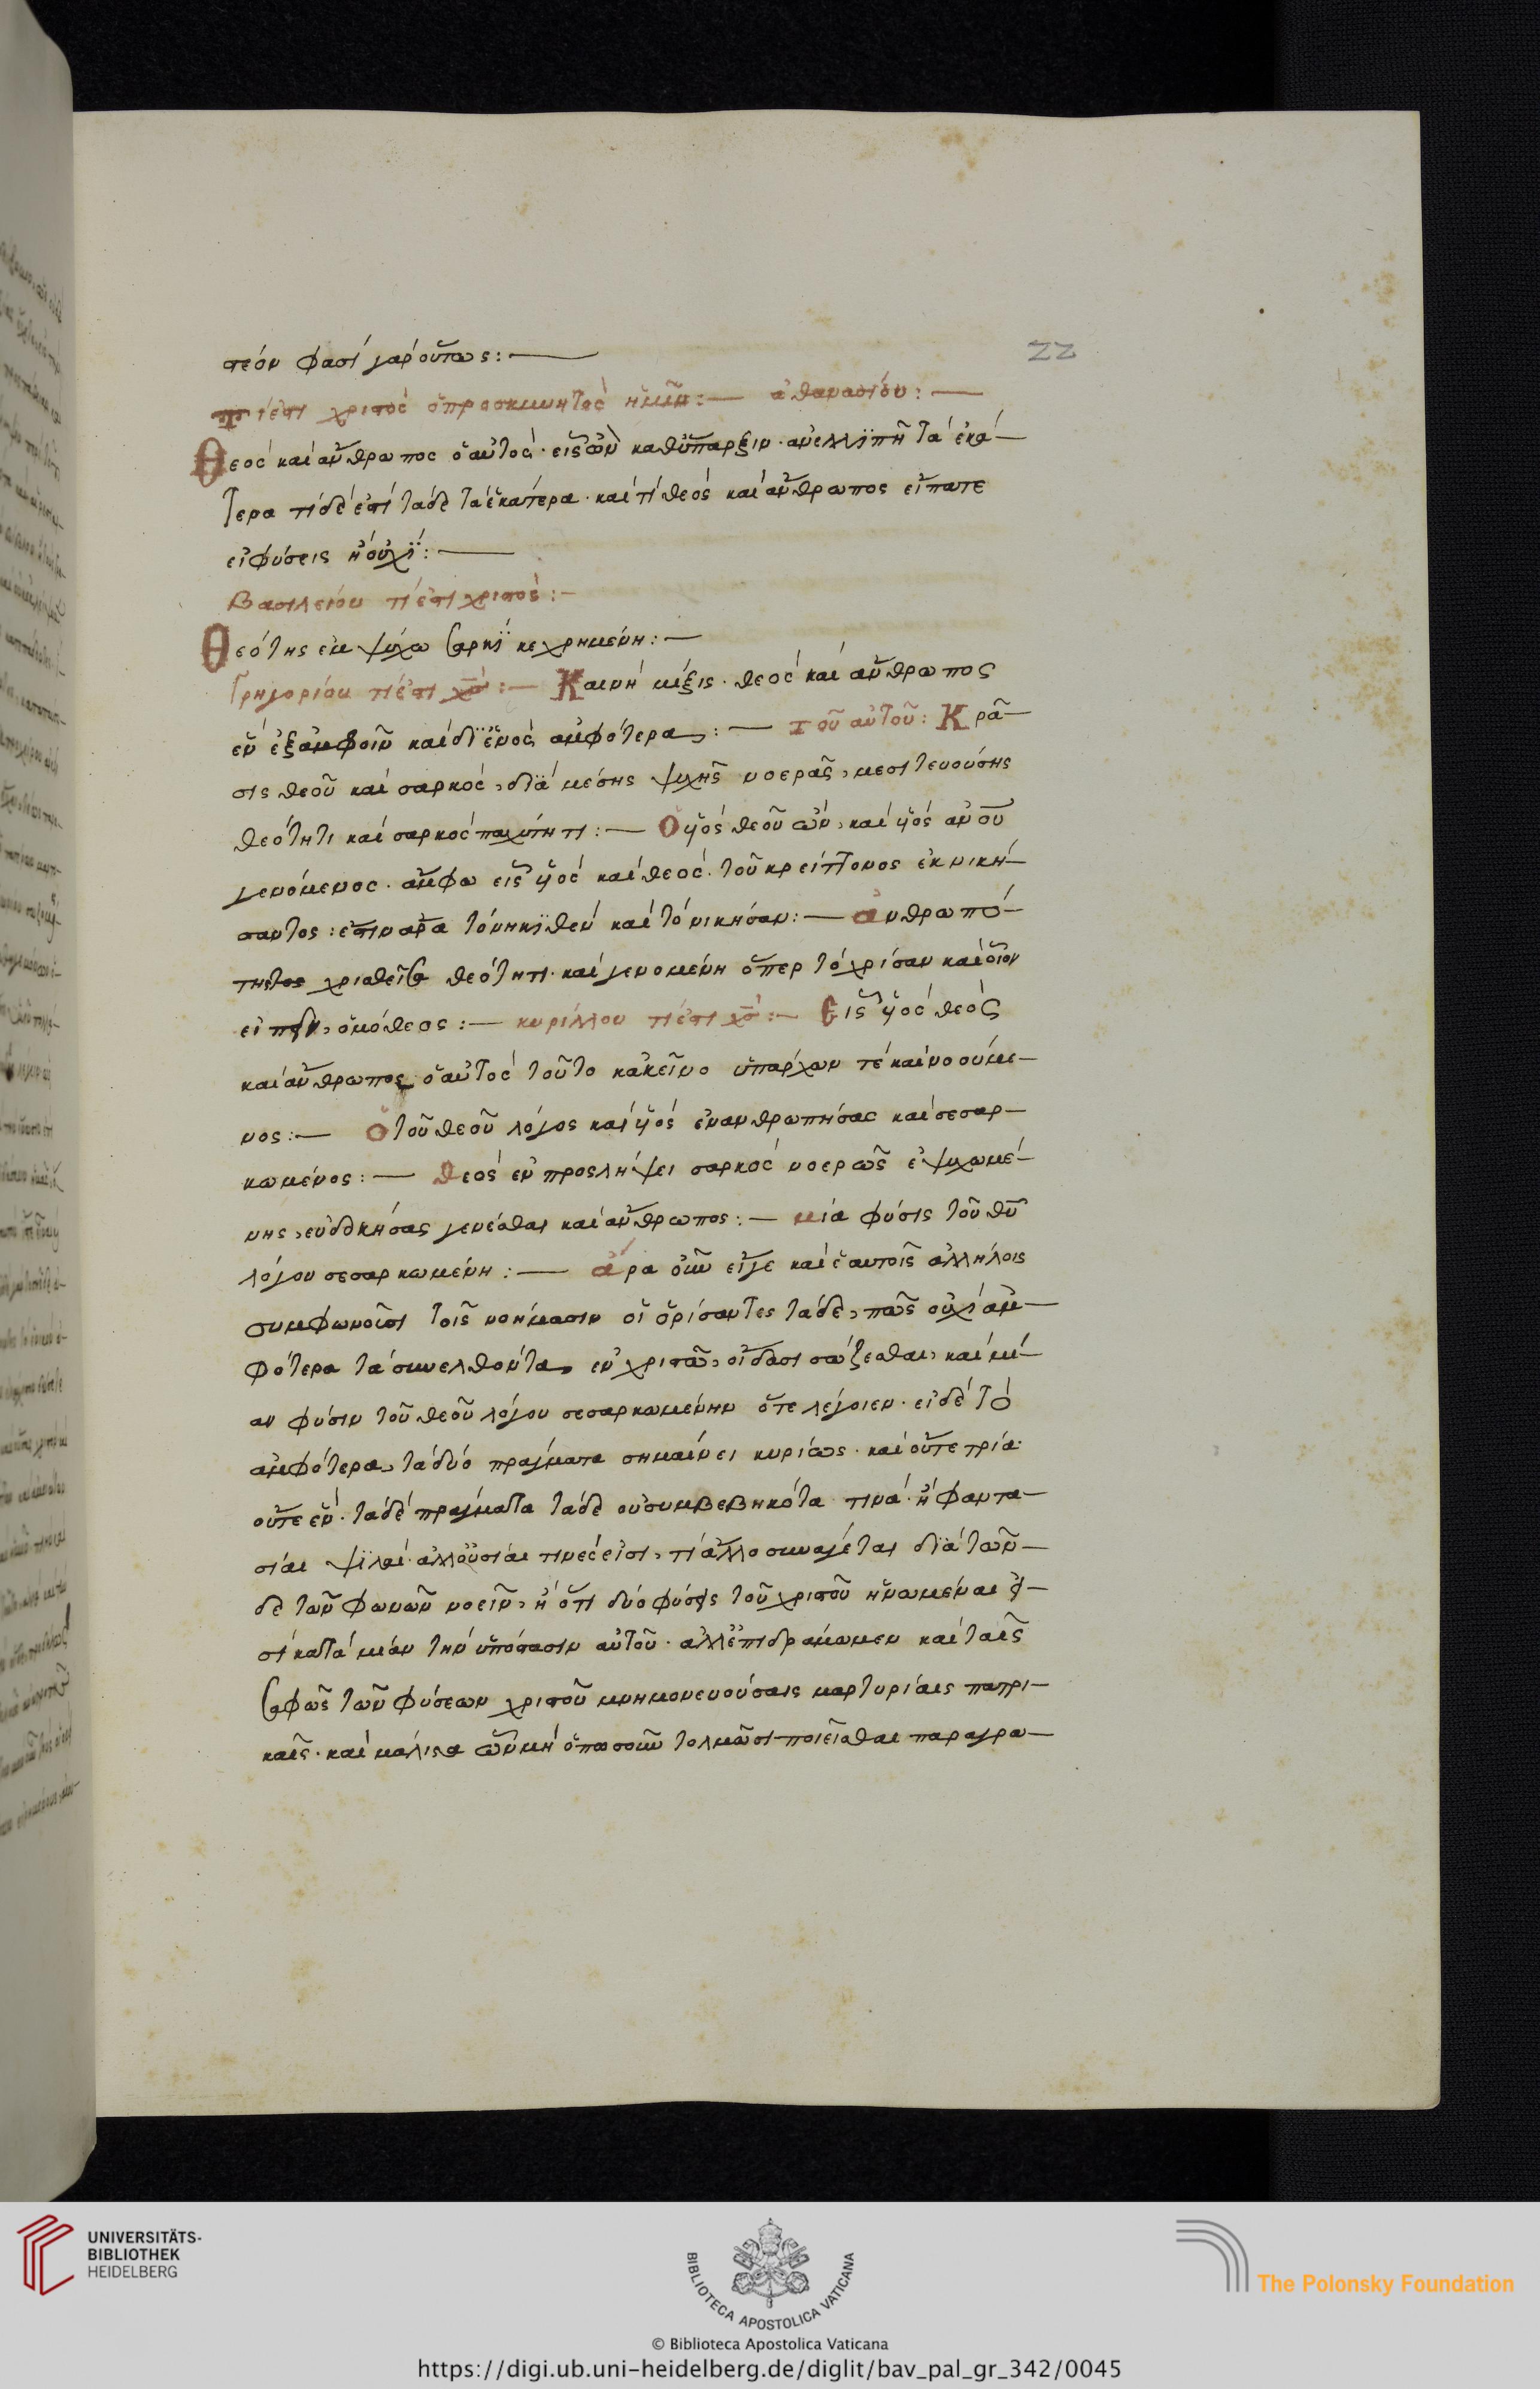 στέον φασὶ γὰρ οὕτως:—
τί ἐστι χριστὸς ὁ προσκυνητὸς ἡμῖν:— ἀθανασίου:—
Θεὸς καὶ ἄνθρωπος ὁ αὐτός· εἷς ὢν καθ ὕπαρξιν· ἀνελλϊπῆ τὰ ἑκά—
τερα τί δέ ἐστὶ τάδε τὰ ἑκάτερα· καὶ τί θεὸς καὶ ἄνθρωπος εἴπατε
εἰ φύσεις ἢ οὐχΐ:—
Βασιλείου τί ἐστι χριστός:—
Θεότης ἐμψύχω σαρκῒ κεχρημένη:—
Γρηγορίου τί ἐστι χσ:— Καινὴ μίξις· θεὸς καὶ ἄνθρωπος
ἓν ἐξ ἀμφοῖν καὶ δϊ ἑνὸς ἀμφότερα:— τοῦ αὐτοῦ: Κρᾶ—
σις θεοῦ καὶ σαρκός, διὰ μέσης ψυχῆς νοερᾶς, μεσιτευούσης
θεότητι καὶ σαρκὸς παχύτητι:— Ὁ υἱὸς θεοῦ ὢν, καὶ υἱὸς ἀνου
γενόμενος· ἄμφω εἷς υἱὸς καὶ θεός· τοῦ κρείττονος ἐκνική—
σαντος: ἔστιν ἄρα τὸ νηκϊθὲν καὶ τὸ νικῆσαν:— ἀνθρωπό—
τητος χρισθεῖσα θεότητι· καὶ γενομένη ὅπερ τὸ χρῖσαν καὶ οἷον
εἰπεῖν, ὁμόθεος:— κυρίλλου τί ἐστι χσ:— Εἷς υἱὸς θεὸς
καὶ ἄνθρωπος ὁ αὐτὸς τοῦτο κἀκεῖνο ὑπάρχων τὲ καὶ νοούμε—
νος:— ὁ τοῦ θεοῦ λόγος καὶ υἱὸς ἐνανθρωπήσας καὶ σεσαρ—
κωμένος:— θεὸς ἐν προσλήψει σαρκὸς νοερῶς ἐψυχωμέ—
νης, εὐδοκήσας γενέσθαι καὶ ἄνθρωπος:— μία φύσις τοῦ θυ
λόγου σεσαρκωμένη:— ἄρα οὖν εἴγε καὶ ἑαυτοῖς ἀλλήλοις
συμφωνοῦσι τοῖς νοήμασιν οἱ ὁρίσαντες τάδε, πῶς οὐχὶ ἀμ—
φότερα τὰ συνελθόντα, ἐν χριστῶ, οἴδασι σώζεσθαι, καὶ μί—
αν φύσιν τοῦ θεοῦ λόγου σεσαρκωμένην ὅτε λέγοιεν· εἰ δὲ τὸ
ἀμφότερα, τὰ δύο πράγματα σημαίνει κυρίως· καὶ οὔτε τρία
οὔτε ἕν· τὰ δὲ πράγματα τάδε οὐ συμβεβηκότα τινὰ· ἢ φαντα—
σίαι ψϊλαὶ· ἀλλ οὐσίαι τινές εἰσι, τί ἄλλο συνάγεται δϊὰ τῶν—
δε τῶν φωνῶν νοεῖν, ἢ ὅτι δύο φύσεις τοῦ χριστοῦ ἡνωμέναι εἰ—
σὶ κατὰ μίαν τὴν ὑπόστασιν αὐτοῦ· ἀλλ ἐπιδράμωμεν καὶ ταῖς
σαφῶς τῶν φύσεων χριστοῦ μνημονευούσαις μαρτυρίαις πατρι—
καῖς· καὶ μάλιστα ὧν μὴ ὁπωσοῦν τολμῶσι ποιεῖσθαι παραγρα—
22
UNIVERSITÄTS-
BIBLIOTHEK
HEIDELBERG
BIBLIOTECA APOSTOLICA VATICANA
The Polonsky Foundation
© Biblioteca Apostolica Vaticana
https://digi.ub.uni-heidelberg.de/diglit/bav_pal_gr_342/0045